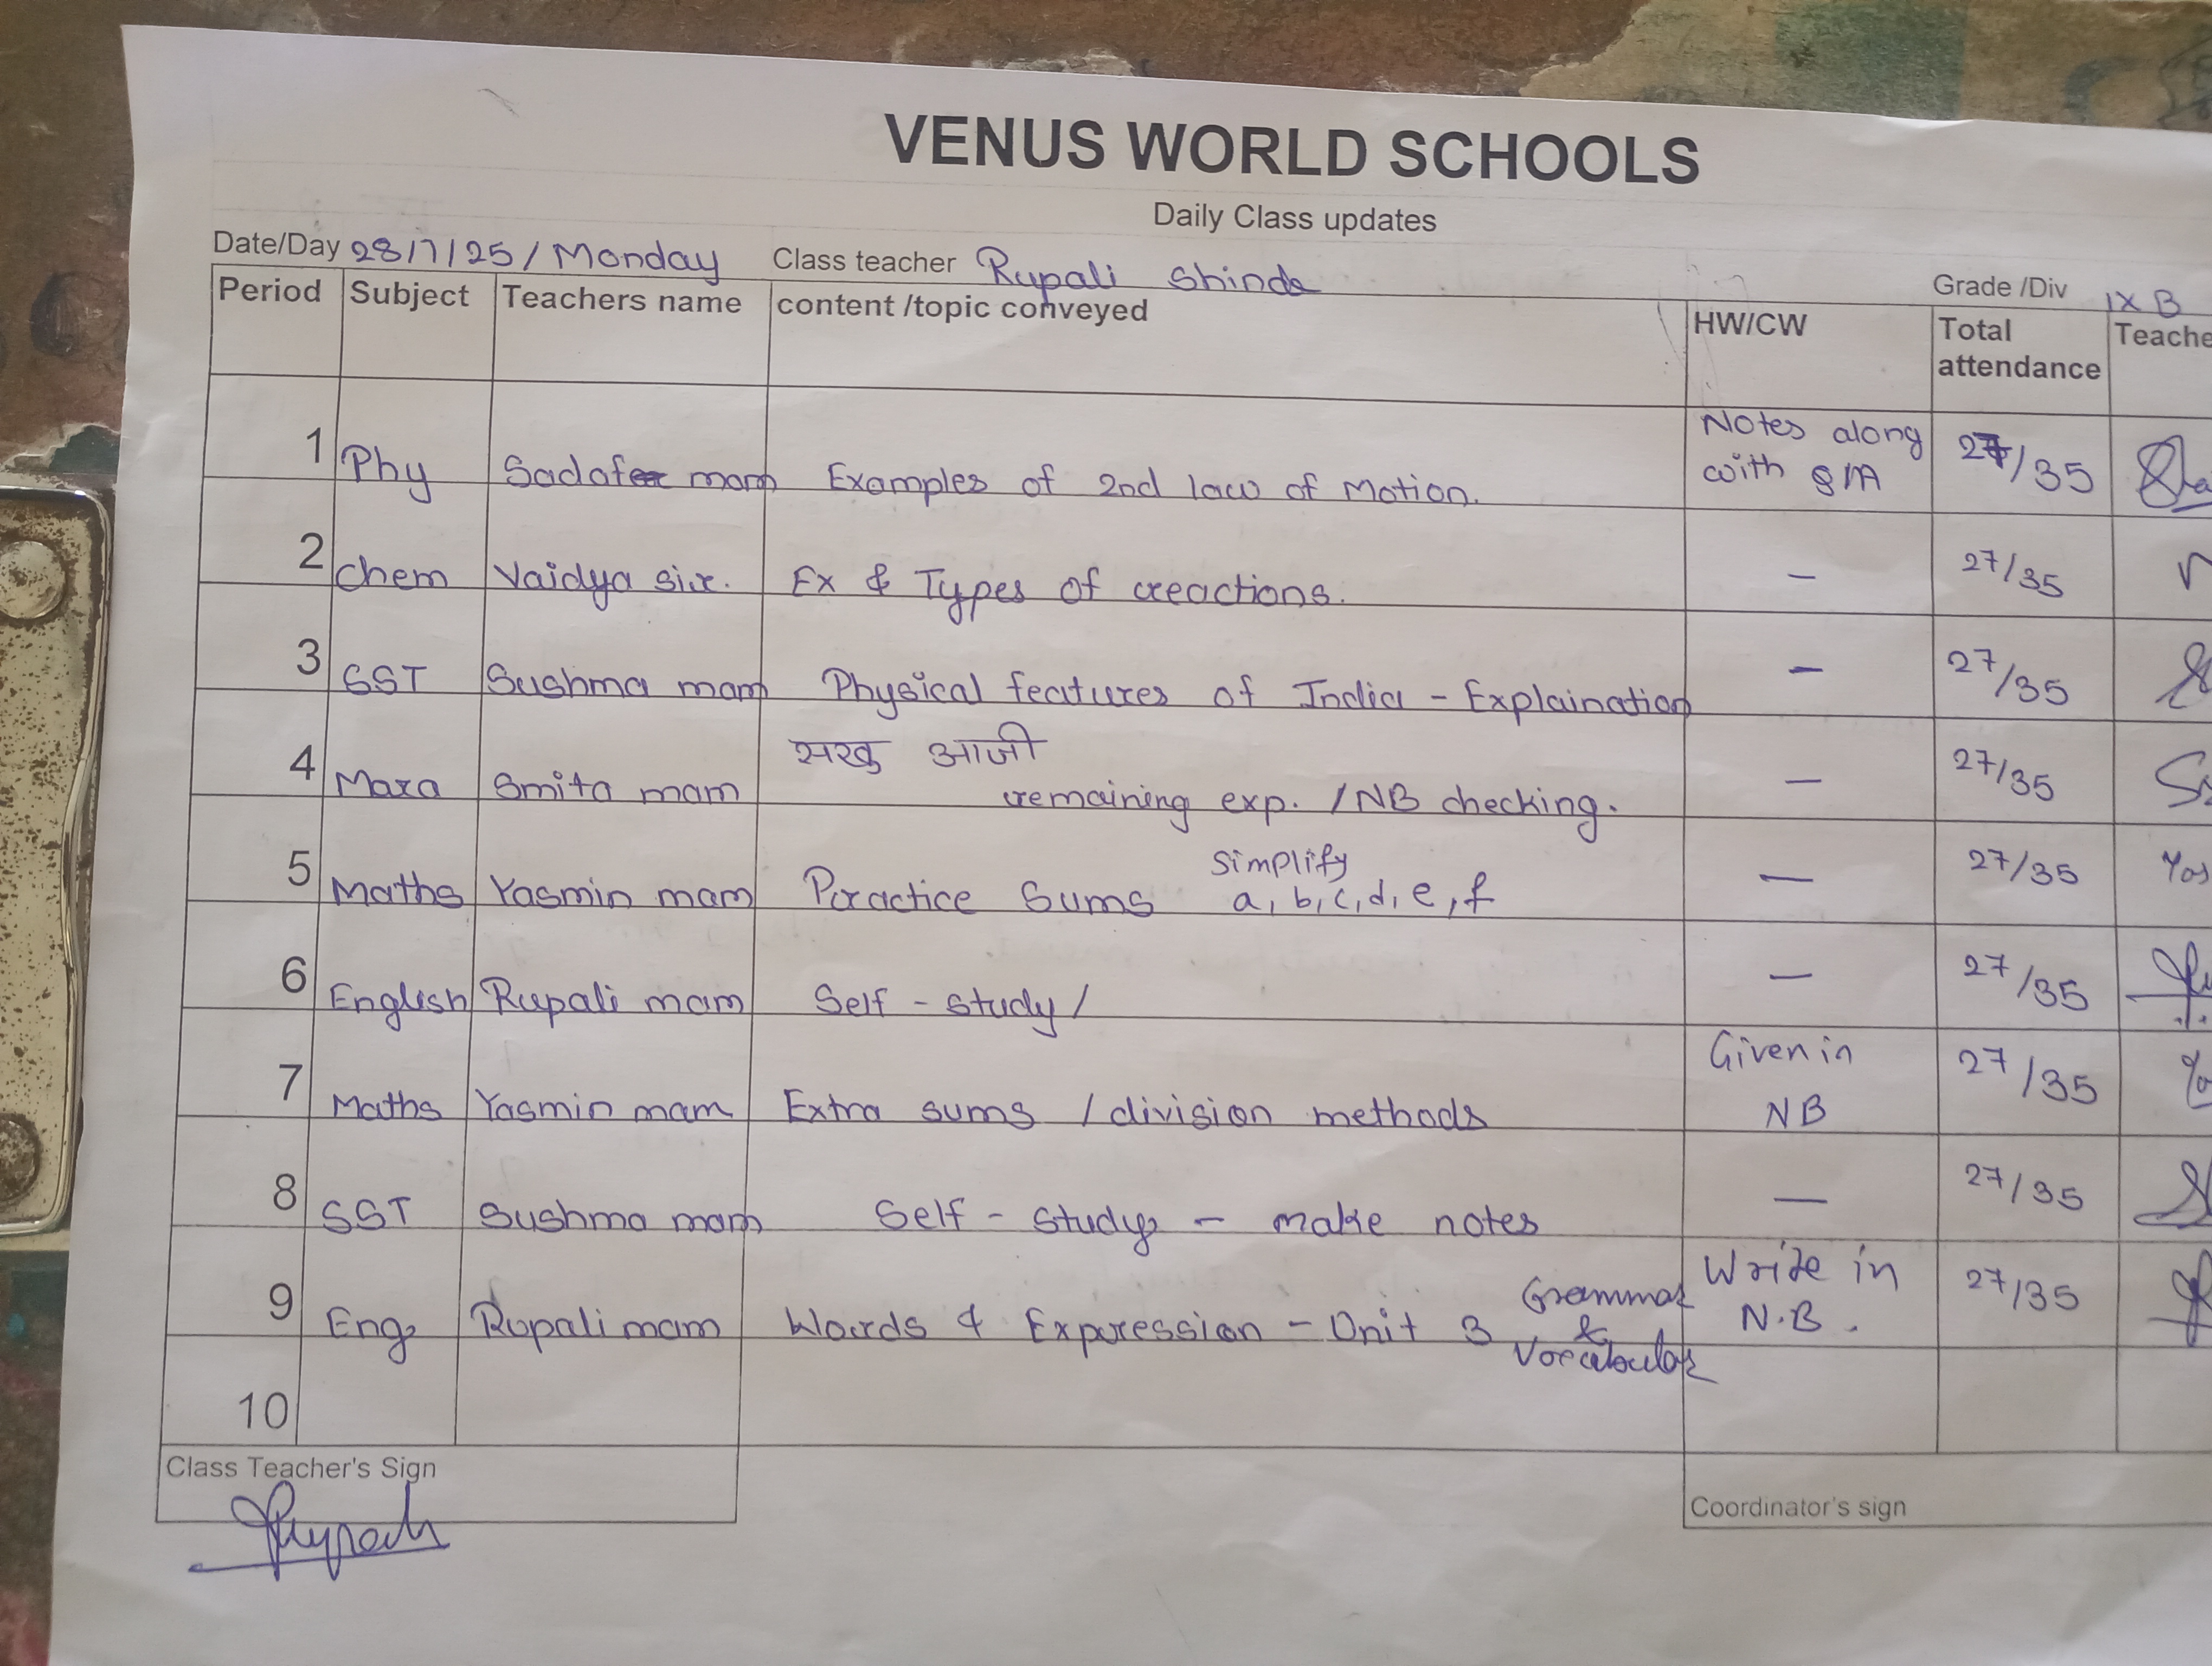 VENUS WORLD SCHOOLS
Daily Class updates
Date/Day 28/7/25 / Monday Class teacher Rupali Shinde Grade /Div IX B
Period Subject Teachers name content /topic conveyed HW/CW Total attendance Teache
1 Phy Sadaf mam Examples of 2nd law of Motion. Notes along with 27/35
2 Chem Vaidya sir. Ex & Types of reactions. — 27/35
3 SST Sushma mam Physical features of India - Explaination — 27/35
4 Mara Smita mam सखु आजी remaining exp. / NB checking. — 27/35
5 Maths Yasmin mam Practice Sums Simplify a, b, c, d, e, f — 27/35
6 English Rupali mam Self - study / — 27/35
7 Maths Yasmin mam Extra sums / division methods Given in NB 27/35
8 SST Sushma mam Self - study - make notes — 27/35
9 Eng Rupali mam Words & Expression - Unit 3 Grammar & Write in N.B. 27/35
10
Class Teacher's Sign
Coordinator's sign